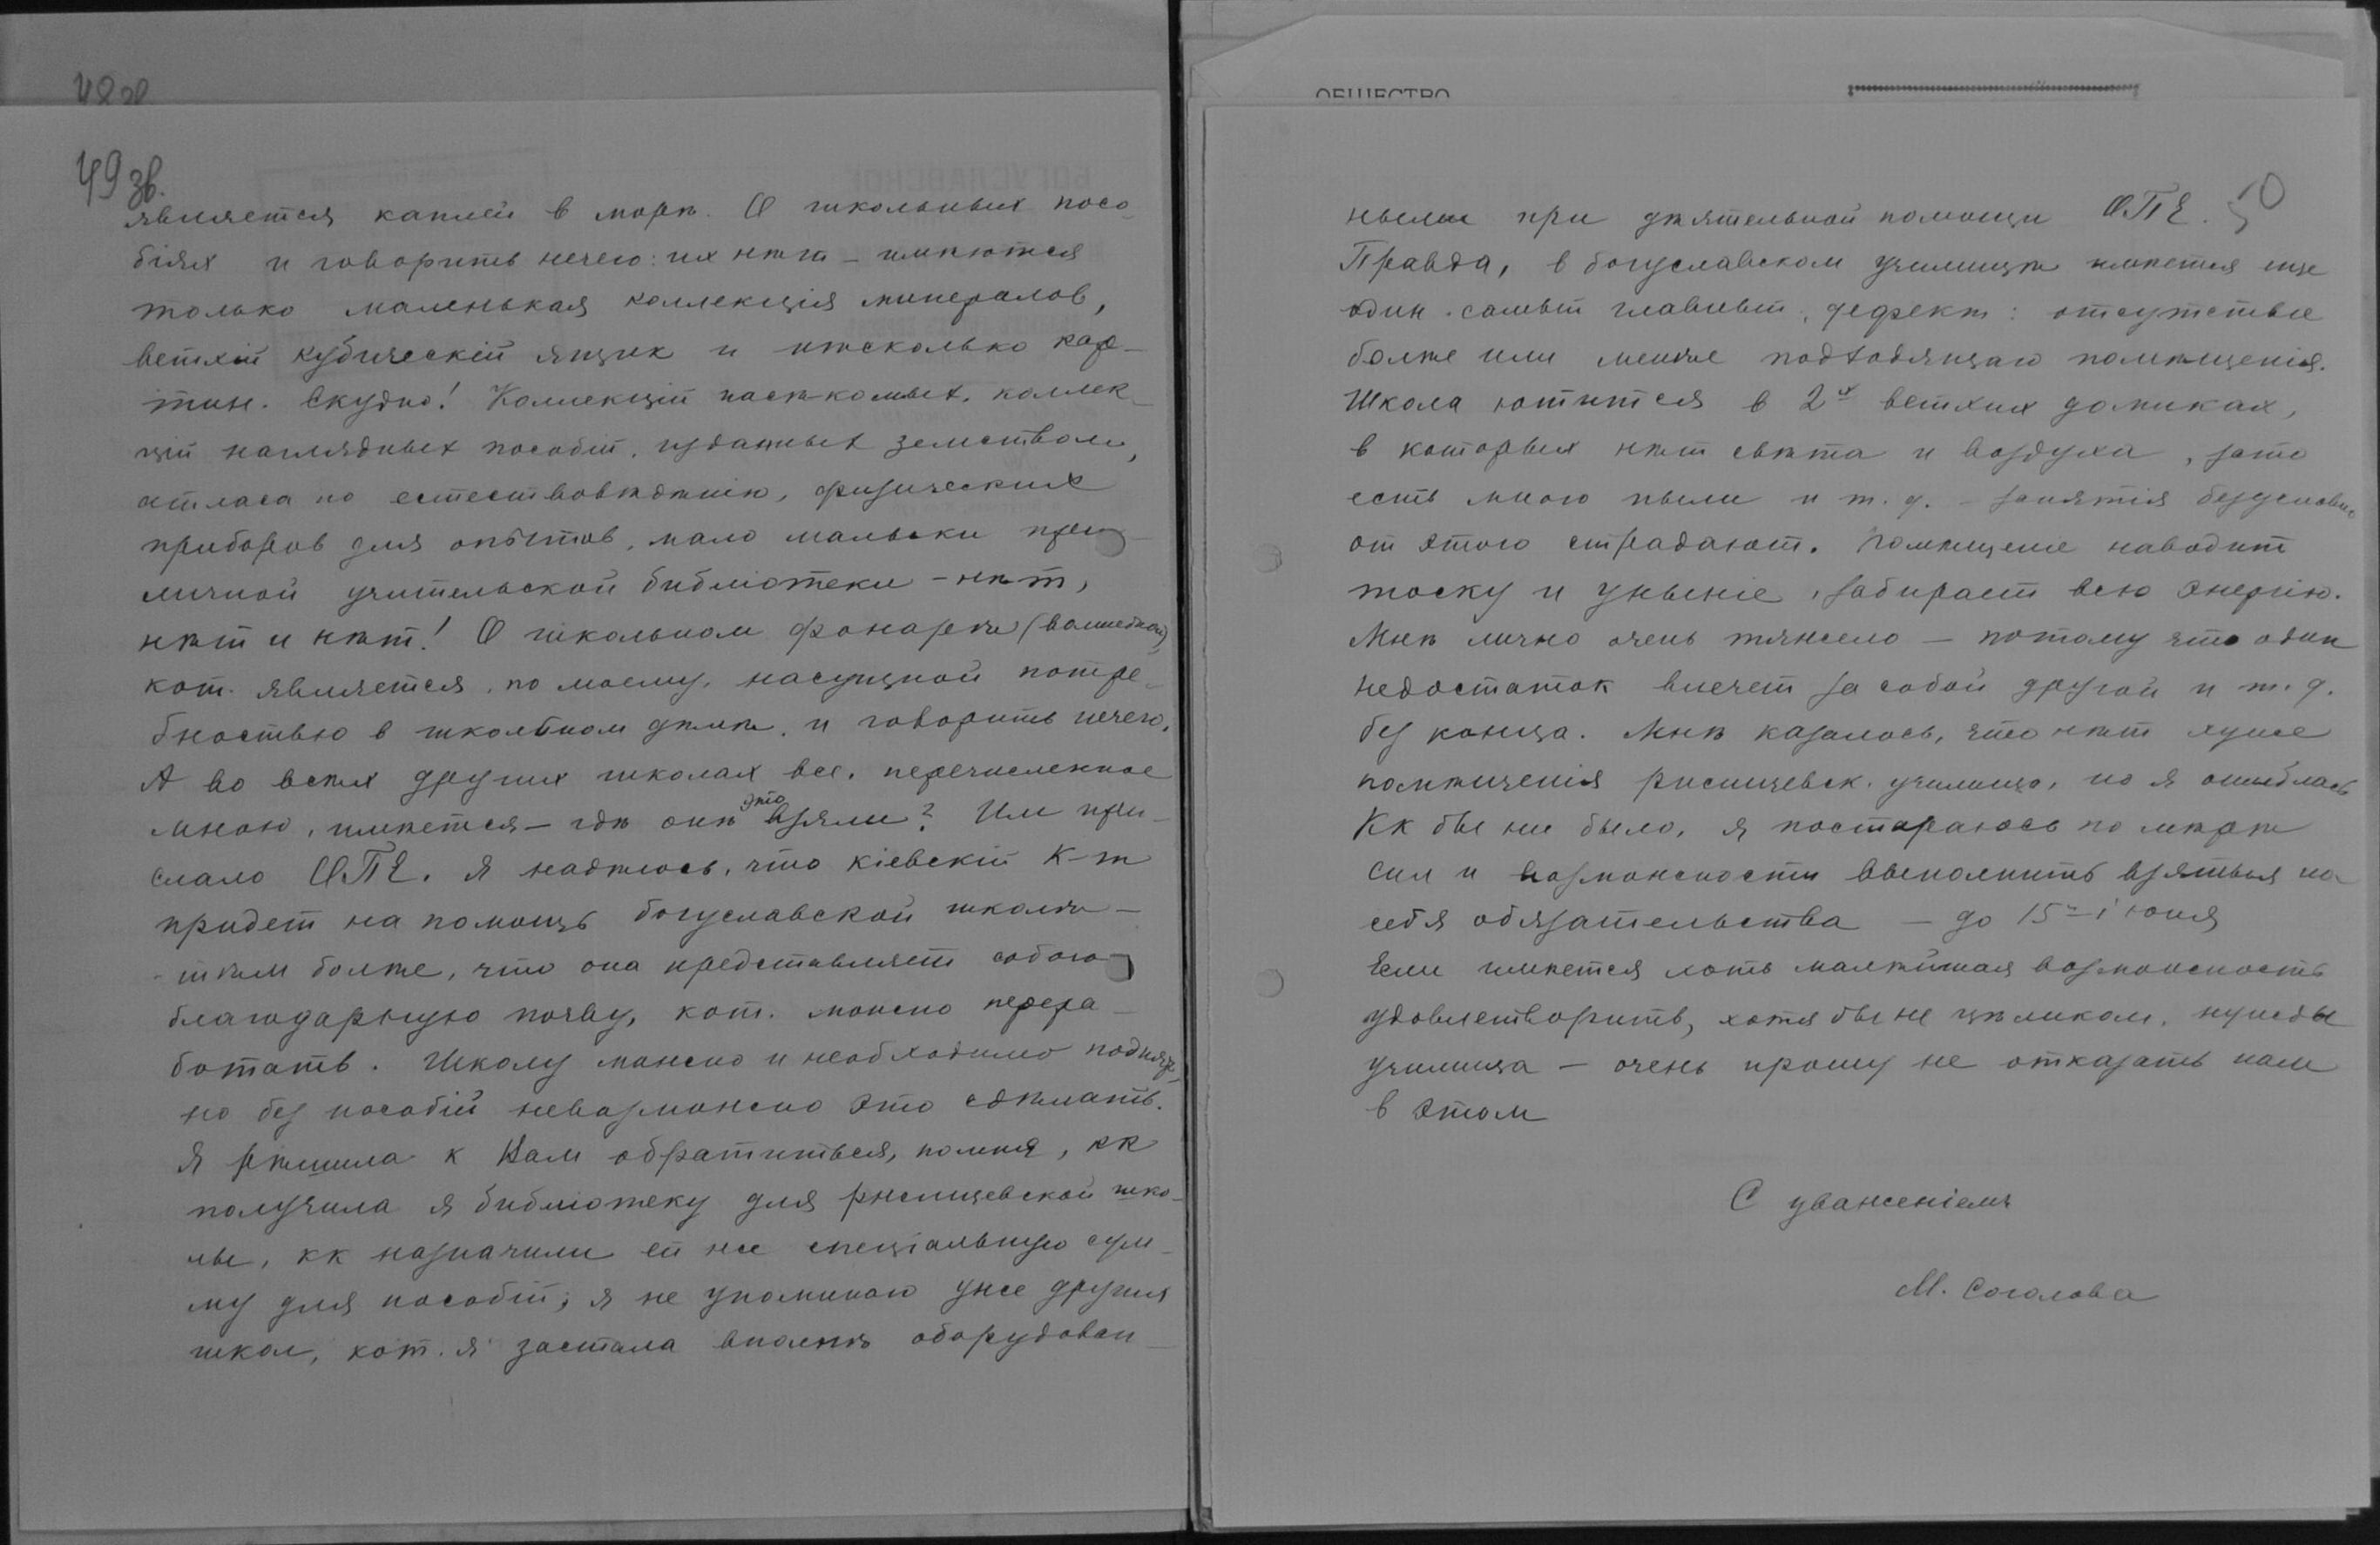 49 зв.
является каплей в морѣ. О школьных посо-
біях и говорить нечего: их нѣт – имѣются
только маленькая коллекція минералов,
ветхій кубическій ящик и нѣсколько кар-
тин. Скудно! Коллекцій насѣкомых, коллек-
цій наглядных пособій, изданных земством,
атласа по естествовѣдѣнію, физических
приборов для опытов, мало мальски при-
личной учительской библіотеки – нѣт,
нѣт и нѣт! О школьном фонарѣ (волшебной)
кот. является, по моему, насущной потре-
бностью в школьном дѣлѣ, и говорить нечего.
А во всѣх других школах все, перечисленное
мною, имѣется – гдѣ онѣ это взяли? Им при-
слало ОПЕ. Я надѣюсь, что кіевскій К-т
придет на помощь богуславской школѣ –
тѣм болѣе, что она представляет собою
благодарную почву, кот. можно перера-
ботать. Школу можно и необходимо поднять,
но без пособій невозможно это сдѣлать.
Я рѣшила к Вам обратиться, помня, кк
получила я библіотеку для ржищевской шко-
лы, кк назначили ей же спеціальную сум-
му для пособій; я не упоминаю уже другія
школ, кот. я застала вполнѣ оборудован-
ОБЩЕСТВО
50
ными при дѣятельной помощи ОПЕ.
Правда, в богуславском училищѣ имѣется еще
один, самый главный, дефект: отсутствіе
болѣе или менѣе подходящаго помѣщенія.
Школа ютится в 2х ветхих домиках,
в которых нѣт свѣта и воздуха, зато
есть много пыли и т. д. – занятія безусловно
от этого страдают. Помѣщеніе наводит
тоску и уныніе, забирает всю энергію.
Мнѣ лично очень тяжело – потому что один
недостаток влечет за собой другой и т. д.
без конца. Мнѣ казалось, что нѣт хуже
помѣщенія ржищевск. училища, но я ошиблась
Кк бы ни было, я постараюсь по мѣрѣ
сил и возможности выполнить взятыя на
себя обязательства – до 15 – іюня
Если имѣется хоть малѣйшая возможность
удовлетворить, хотя бы не цѣликом, нужды
училища – очень прошу не отказать нам
в этом
С уваженіемъ
М. Соколова